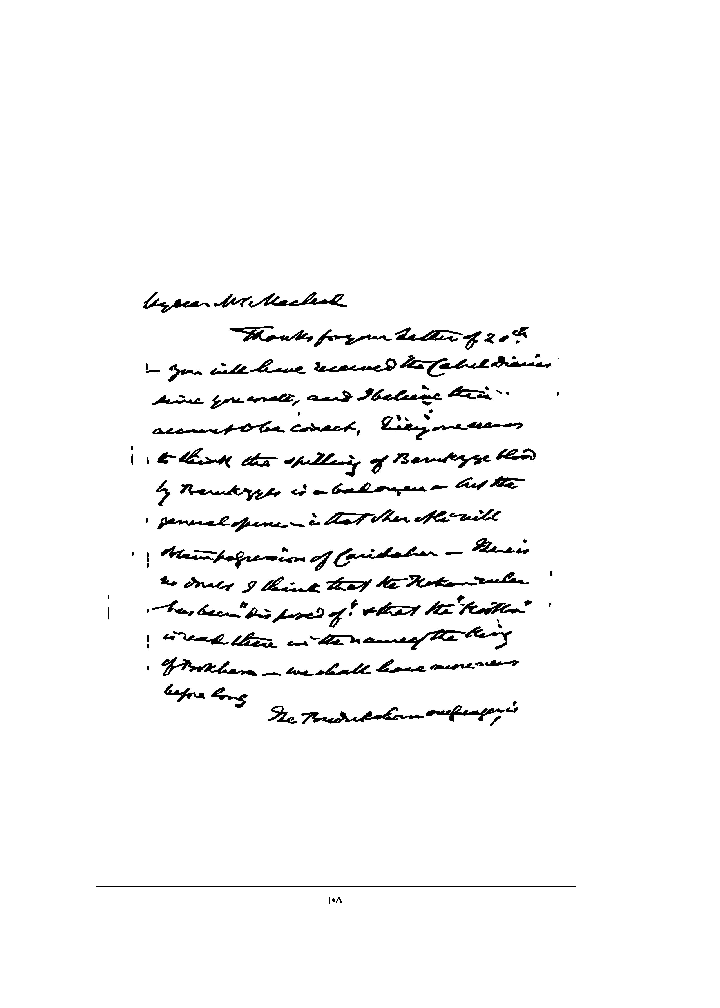 My dear Mr Macleod
Thanks for your letter of 20th
– you will have received the Cabul diaries
since you wrote, and I believe their
account to be correct. Every one seems
to think the spilling of Barukzye blood
by Barukzyes is a bad omen – but the
general opinion is that Sher Ali will
obtain possession of Candahar – There is
no doubt I think that the Kokan ruler
has been "disposed of" & that the "Kootba"
is read there in the name of the King
of Bokhara – we shall have more news
before long
The Budukshan messenger is
١٥٨